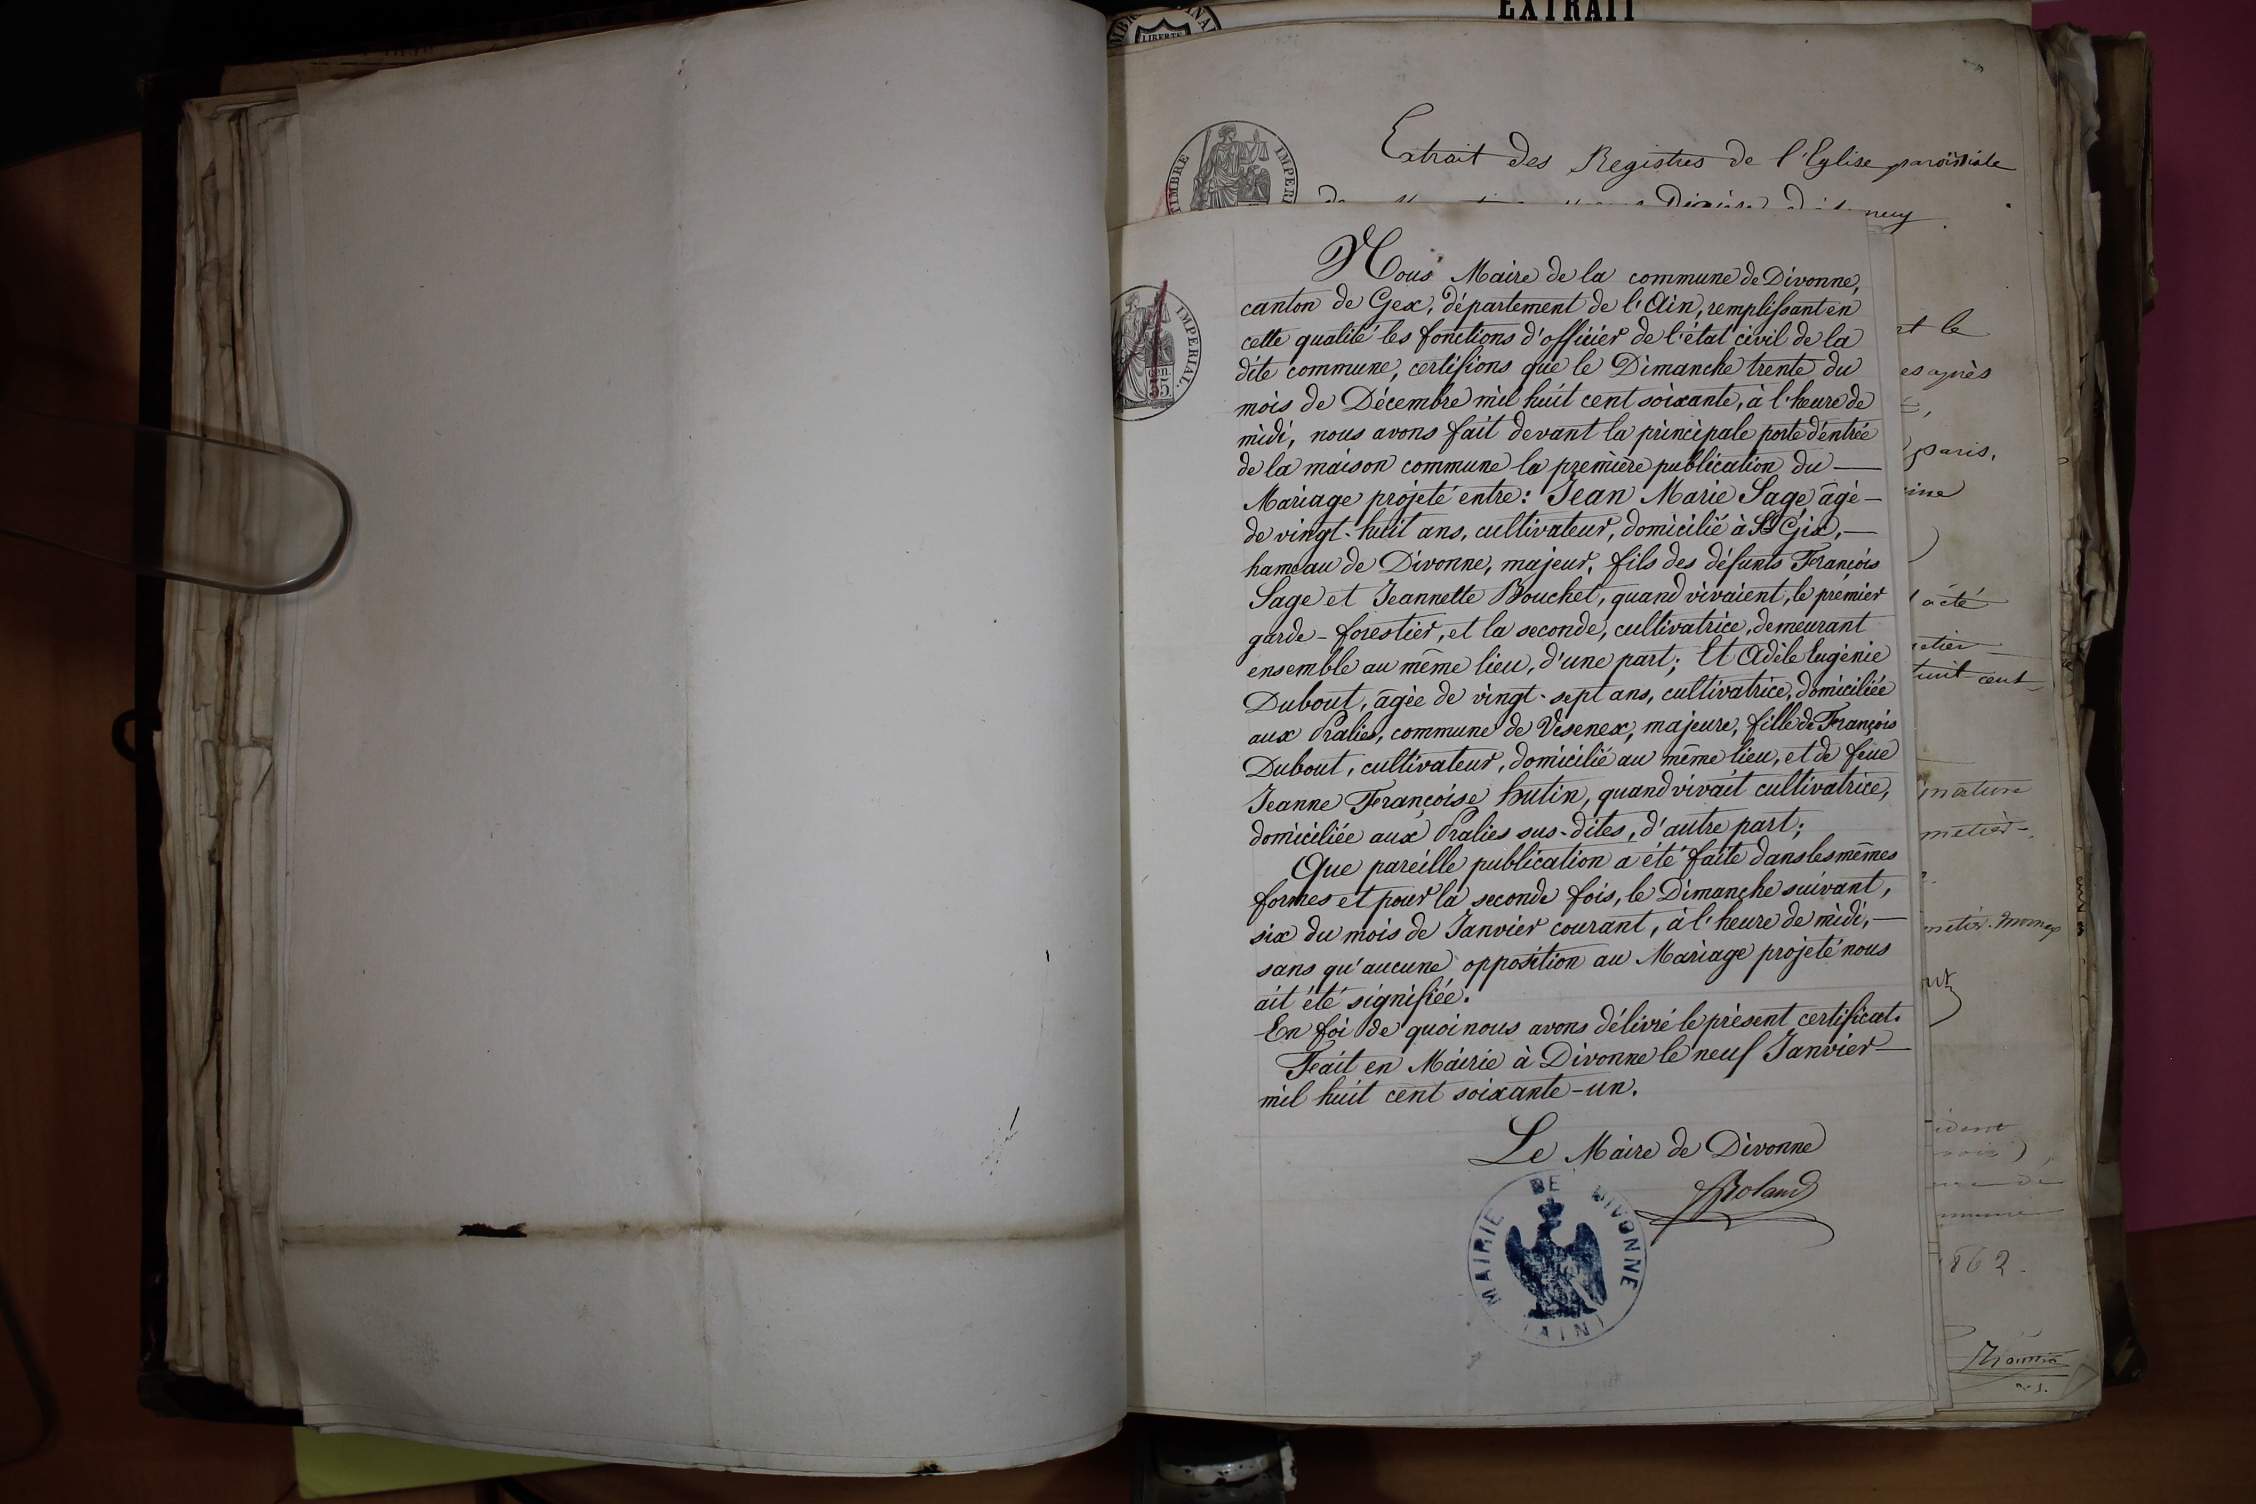 EXTRAIT
LIBERTÉ
Extrait des Registres de l'Eglise paroissiale
TIMBRE IMPERI
Nous Maire de la commune de Divonne,
canton de Gex, département de l'Ain, remplissant en
cette qualité les fonctions d'officier de l'état civil de la
dite commune, certifions que le Dimanche trente du
mois de Décembre mil huit cent soixante, à l'heure de
midi, nous avons fait devant la principale porte d'entrée
de la maison commune la première publication du —
Mariage projeté entre: Jean Marie Sage âgé —
de vingt-huit ans, cultivateur, domicilié à St Gix, —
hameau de Divonne, majeur, fils des défunts François
Sage et Jeannette Bouchet, quand vivaient, le premier
garde-forestier, et la seconde, cultivatrice, demeurant
ensemble au même lieu, d'une part; Et Adèle Eugénie
Dubout, âgée de vingt-sept ans, cultivatrice, domiciliée
aux Pralies, commune de Vesenex, majeure, fille de François
Dubout, cultivateur, domicilié au même lieu, et de feue
Jeanne Françoise hutin, quand vivait cultivatrice,
domiciliée aux Pralies sus-dites, d'autre part;
Que pareille publication a été faite dans les mêmes
formes et pour la seconde fois, le Dimanche suivant,
six du mois de Janvier courant, à l'heure de midi, —
sans qu'aucune opposition au Mariage projeté nous
ait été signifiée.
En foi de quoi nous avons délivré le présent certificat.
Fait en Mairie à Divonne le neuf Janvier —
mil huit cent soixante-un.
Le Maire de Divonne
Roland
MAIRIE DE DIVONNE
(AIN)
IMPERIAL.
35
et le
es après
paris.
acté
huit cent